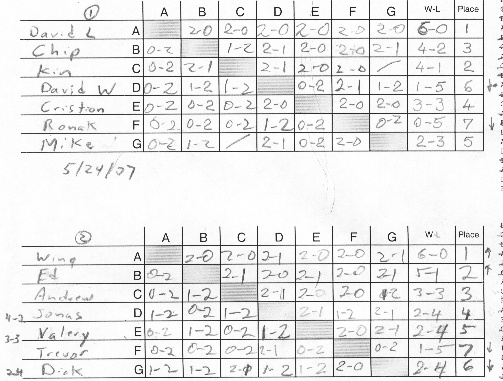 ①
A B C D E F G W-L Place
David L A 2-0 2-0 2-0 2-0 2-0 2-0 6-0 1
Chip B 0-2 1-2 2-1 2-0 2-0 2-1 4-2 3
Kin C 0-2 2-1 2-1 2-0 2-0 / 4-1 2
David W D 0-2 1-2 1-2 0-2 2-1 1-2 1-5 6 ↓
Cristion E 0-2 0-2 0-2 2-0 2-0 2-0 3-3 4
Ronak F 0-2 0-2 0-2 1-2 0-2 0-2 0-5 7 ↓
Mike G 0-2 1-2 / 2-1 0-2 2-0 2-3 5
5/24/07
②
A B C D E F G W-L Place
Wing A 2-0 2-0 2-1 2-0 2-0 2-1 6-0 1 ↑
Ed B 0-2 2-1 2-0 2-1 2-0 21 5-1 2 ↑
Andrew C 0-2 1-2 2-1 2-0 2-0 12 3-3 3
4-2 Jonas D 1-2 0-2 1-2 2-1 1-2 2-1 2-4 4
3-3 Valery E 0-2 1-2 0-2 1-2 2-0 2-1 2-4 5
Trevor F 0-2 0-2 0-2 2-1 0-2 0-2 1-5 7 ↓
2-4 Dick G 1-2 1-2 2-1 1-2 1-2 2-0 2-4 6 ↓